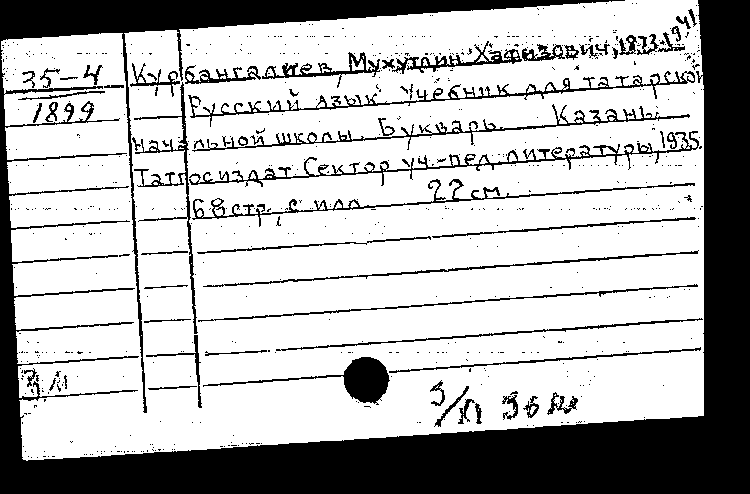 35-4
1899
Курбангалиев, Мухутдин Хафизович, 1873-1941
Русский язык. Учебник для татарской
начальной школы. Букварь. Казань:
Татгосиздат. Сектор уч.-пед. литературы, 1935.
68 стр., с илл. 22 см.